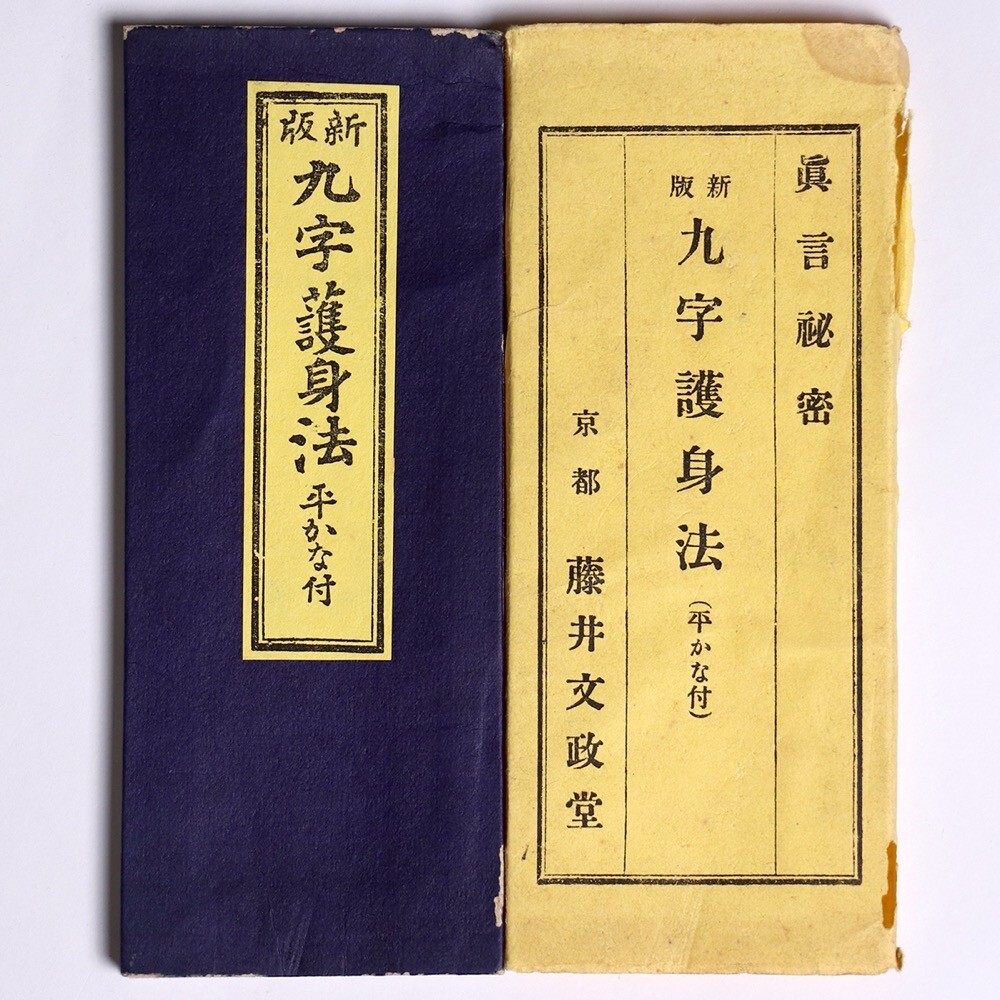 新版
九字護身法
平かな付
眞言祕密
新版
九字護身法
(平かな付)
京都 藤井文政堂